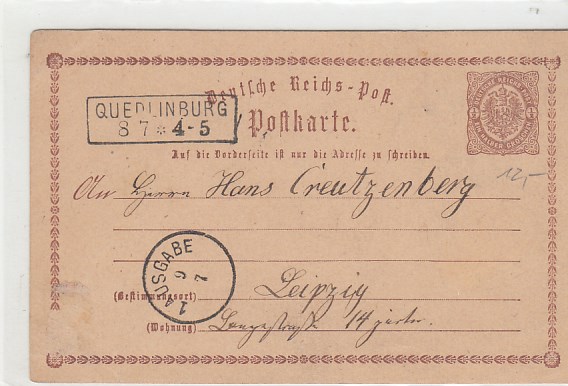 Deutsche Reichs-Post.
QUEDLINBURG
8 7 * 4-5
Postkarte.
Auf die Vorderseite ist nur die Adresse zu schreiben.
12,-
An Herrn Hans Creutzenberg
AUSGABE
9
7
1
Leipzig
(Bestimmungsort)
(Wohnung) Langestraße 14 parterr.